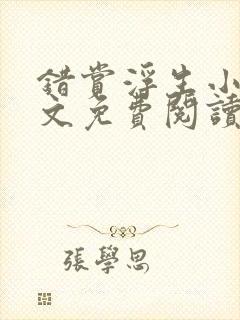 錯賞浮生小
文免費閱讀
張學思